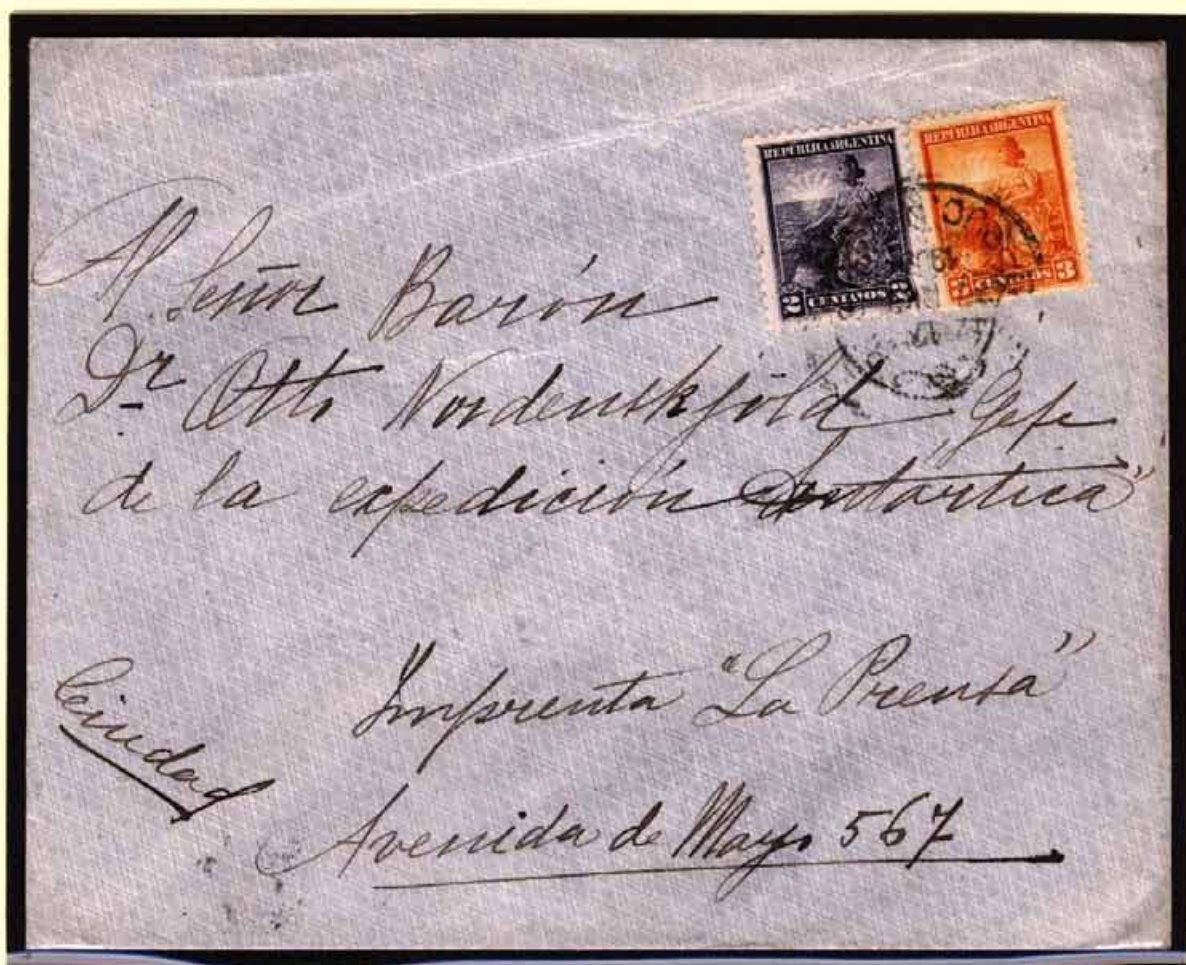 REPÚBLICA ARGENTINA
2 CENTAVOS 2
REPÚBLICA ARGENTINA
3 CENTAVOS 3
Al Señor Barón
Dr Otto Nordenskjöld Gefe
de la expedición "Antártica"
Imprenta "La Prensa"
Ciudad
Avenida de Mayo 567